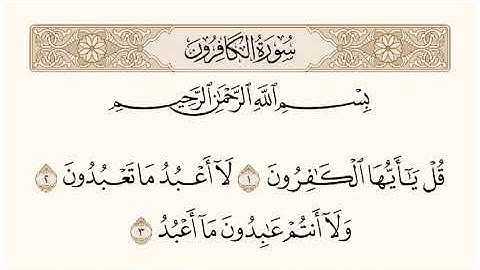 سُورَةُ الكَافِرُونَ
بِسْمِ اللَّهِ الرَّحْمَٰنِ الرَّحِيمِ
قُلْ يَٰٓأَيُّهَا ٱلْكَٰفِرُونَ ١ لَآ أَعْبُدُ مَا تَعْبُدُونَ ٢
وَلَآ أَنتُمْ عَٰبِدُونَ مَآ أَعْبُدُ ٣